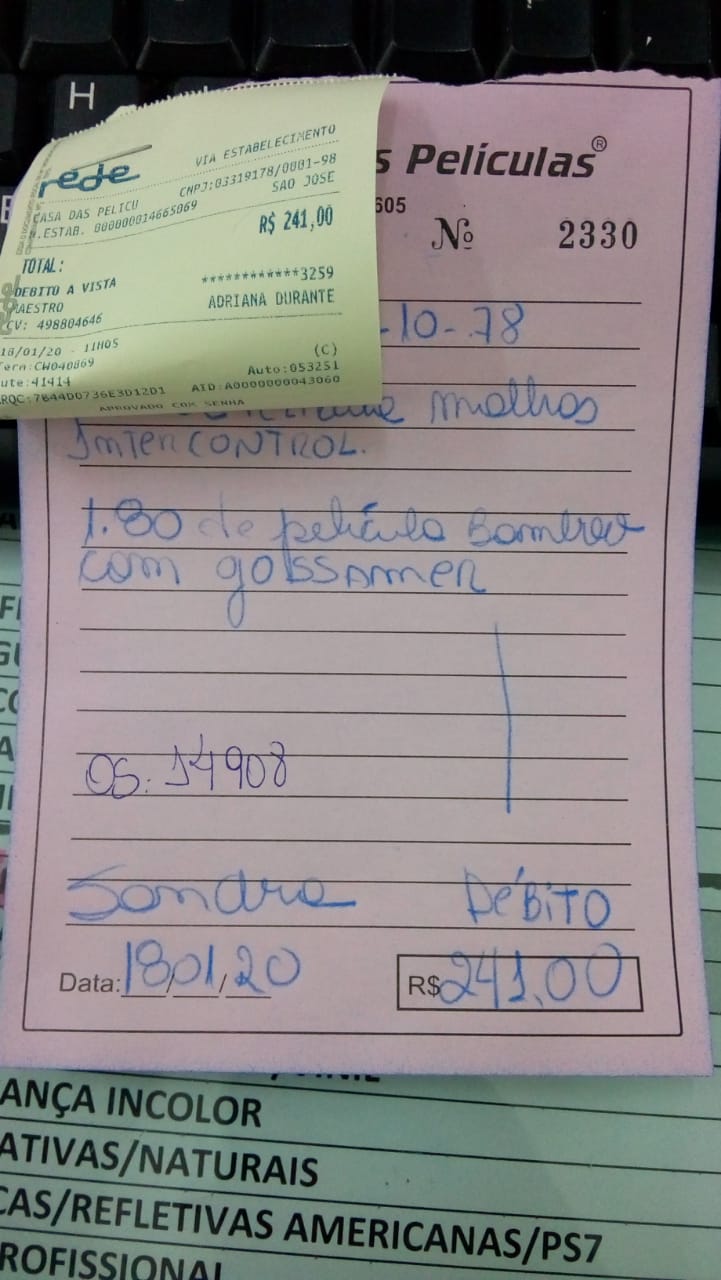 H
rede
VIA ESTABELECIMENTO
CNPJ:03319178/0001-98
CASA DAS PELICU SAO JOSE
N.ESTAB. 000000014665069
R$ 241,00
TOTAL:
DEBITO A VISTA
************3259
MAESTRO
ADRIANA DURANTE
CV: 498804646
18/01/20 - 11H05 (C)
Term:CW040869 Auto:053251
ute:41414
ARQC:7644D0736E3D12D1 AID:A0000000043060
APROVADO COM SENHA
s Películas®
605
Nº 2330
-10-78
molhos
Inter CONTROL.
1.80 de película
com gossamer
OS: 14908
Sandra DéBiTO
Data: 18/01/20 R$ 241,00
ANÇA INCOLOR
ATIVAS/NATURAIS
CAS/REFLETIVAS AMERICANAS/PS7
ROFISSIONAL